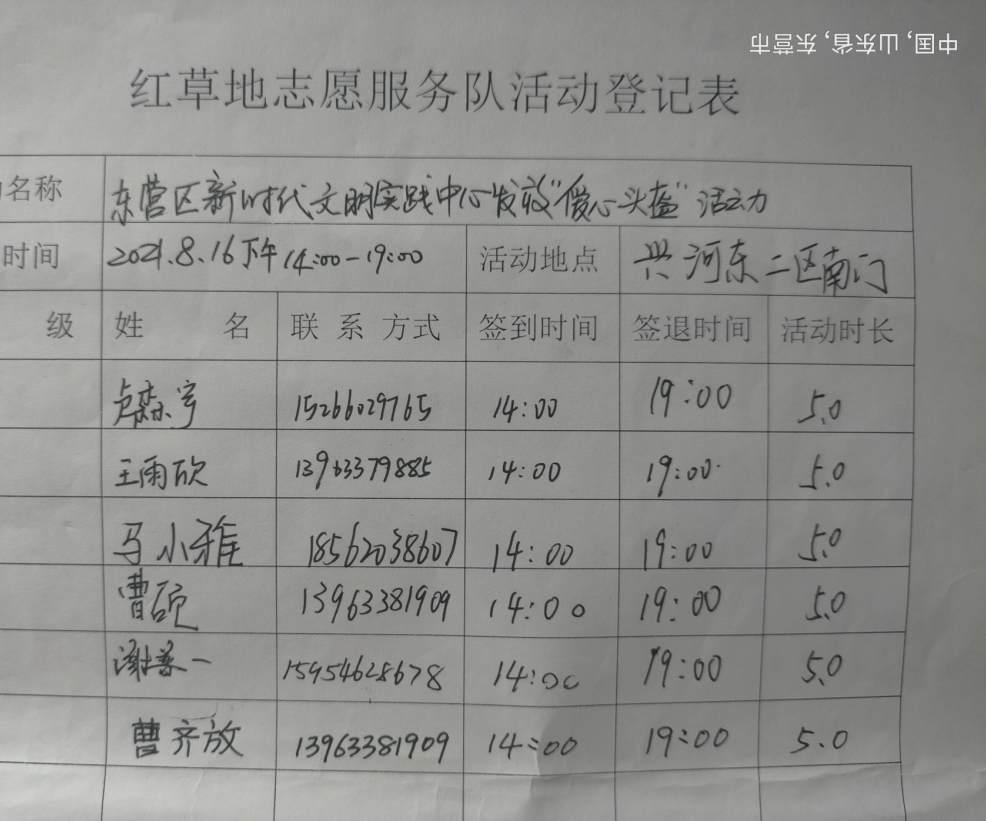 中国，山东省，东营市
红草地志愿服务队活动登记表
名称 东营区新时代文明实践中心发放"爱心头盔"活动
时间 2021.8.16下午14:00-19:00 活动地点 兴河东二区南门
级 姓 名 联系方式 签到时间 签退时间 活动时长
卢森宇 15266029765 14:00 19:00 5.0
王雨欣 13963379885 14:00 19:00 5.0
马小雅 18562038607 14:00 19:00 5.0
曹硕 13963381909 14:00 19:00 5.0
一 15954628678 14:00 19:00 5.0
曹齐放 13963381909 14:00 19:00 5.0